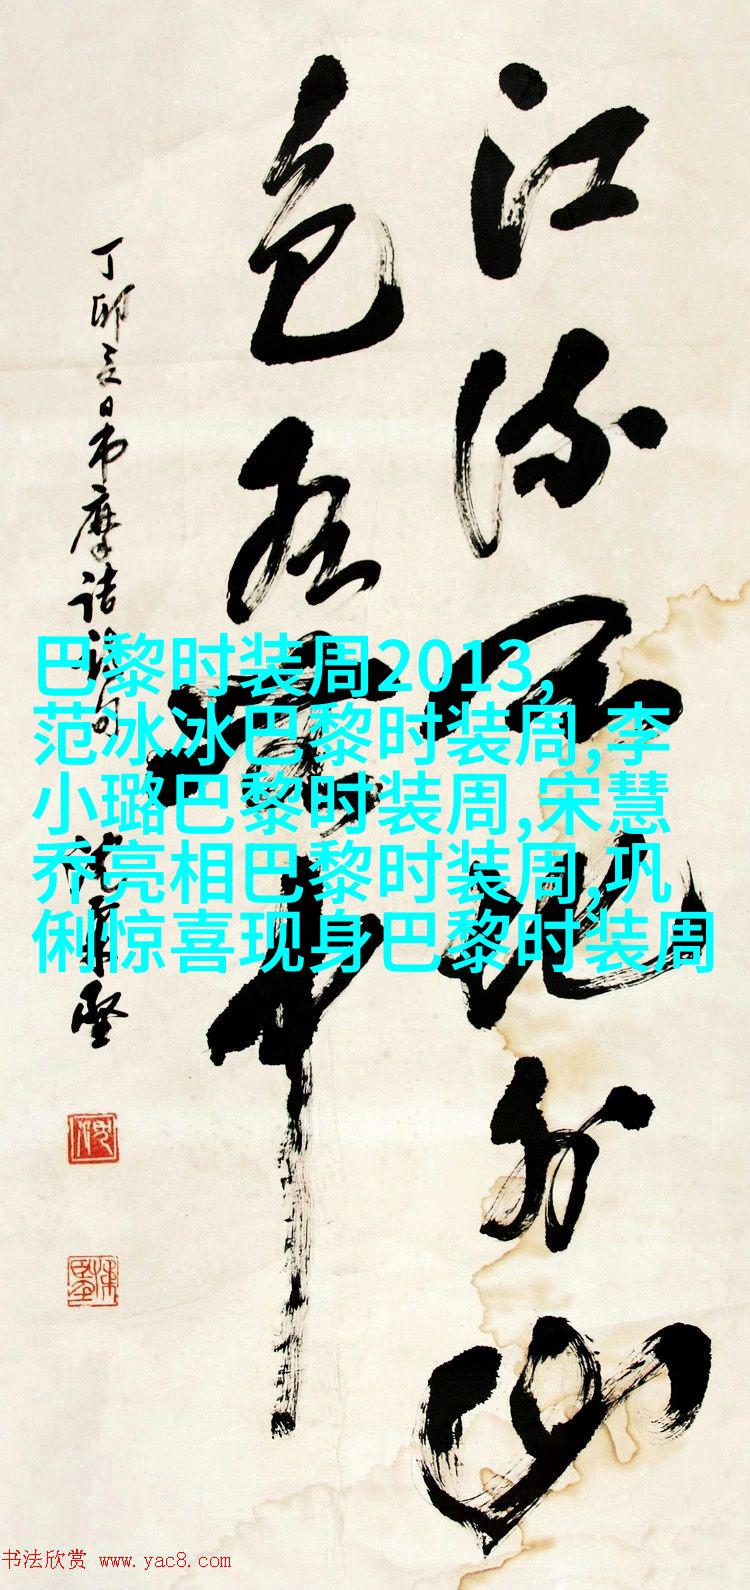 江流天地外山
色有無中
丁卯夏日书摩诘诗句
巴黎时装周2013,
范冰冰巴黎时装周,李
小璐巴黎时装周,宋慧
乔亮相巴黎时装周,巩
俐惊喜现身巴黎时装周
书法欣赏 www.yac8.com